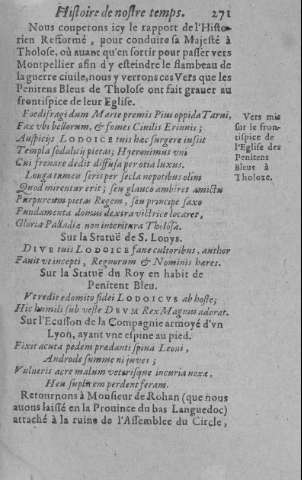 Histoire de nostre temps. 271
Nous couperons icy le rapport de l'Histo-
rien Reformé, pour conduire sa Majesté à
Tholose, où auant qu'en sortir pour passer vers
Montpellier afin d'y esteindre le flambeau de
la guerre ciuile, nous y verrons ces Vers que les
Penitens Bleus de Tholose ont fait grauer au
frontispice de leur Eglise.
Vers mis
sur le fron-
tispice de
l'Eglise des
Penitens
Bleus à
Tholoze.
Foedifragi dum Marte premis Pius oppida Tarni,
Fax vbi bellorum, & fomes Ciuilis Erinnis;
Auspiciis LODOICE tuis hæc surgere iussit
Templa sodalitij pietas; Hyeronimus vni
Cui frenare dedit diffusa per otia luxus.
Longa tumeu seris per secla nepotibus olim
Quod mirentur erit; seu glauco ambires amictu
Purpureum pietas Regem, seu princeps saxo
Fundamenta domus dextra victrice locaret,
Gloria Palladiæ non interitura Tholosæ.
Sur la Statuë de S. Louys.
DIVE tuis LODOICE faue cultoribus, author
Fauit vt incepti, Regnorum & Nominis hæres.
Sur la Statuë du Roy en habit de
Penitent Bleu.
Vt redit edomito fidei LODOICVS ab hoste;
Hic humili sub veste DEVM Rex Magnus adorat.
Sur l'Ecusson de la Compagnie armoyé d'vn
Lyon, ayant vne espine au pied.
Fixit acuta pedem prædantis spina Leoni,
Androde summe ni iuues;
Vulneris acre malum veterisque incuria noxæ,
Heu supinum perdent feram.
Retournons à Monsieur de Rohan (que nous
auons laissé en la Prouince du bas Languedoc)
attaché à la ruine de l'Assemblee du Circle,